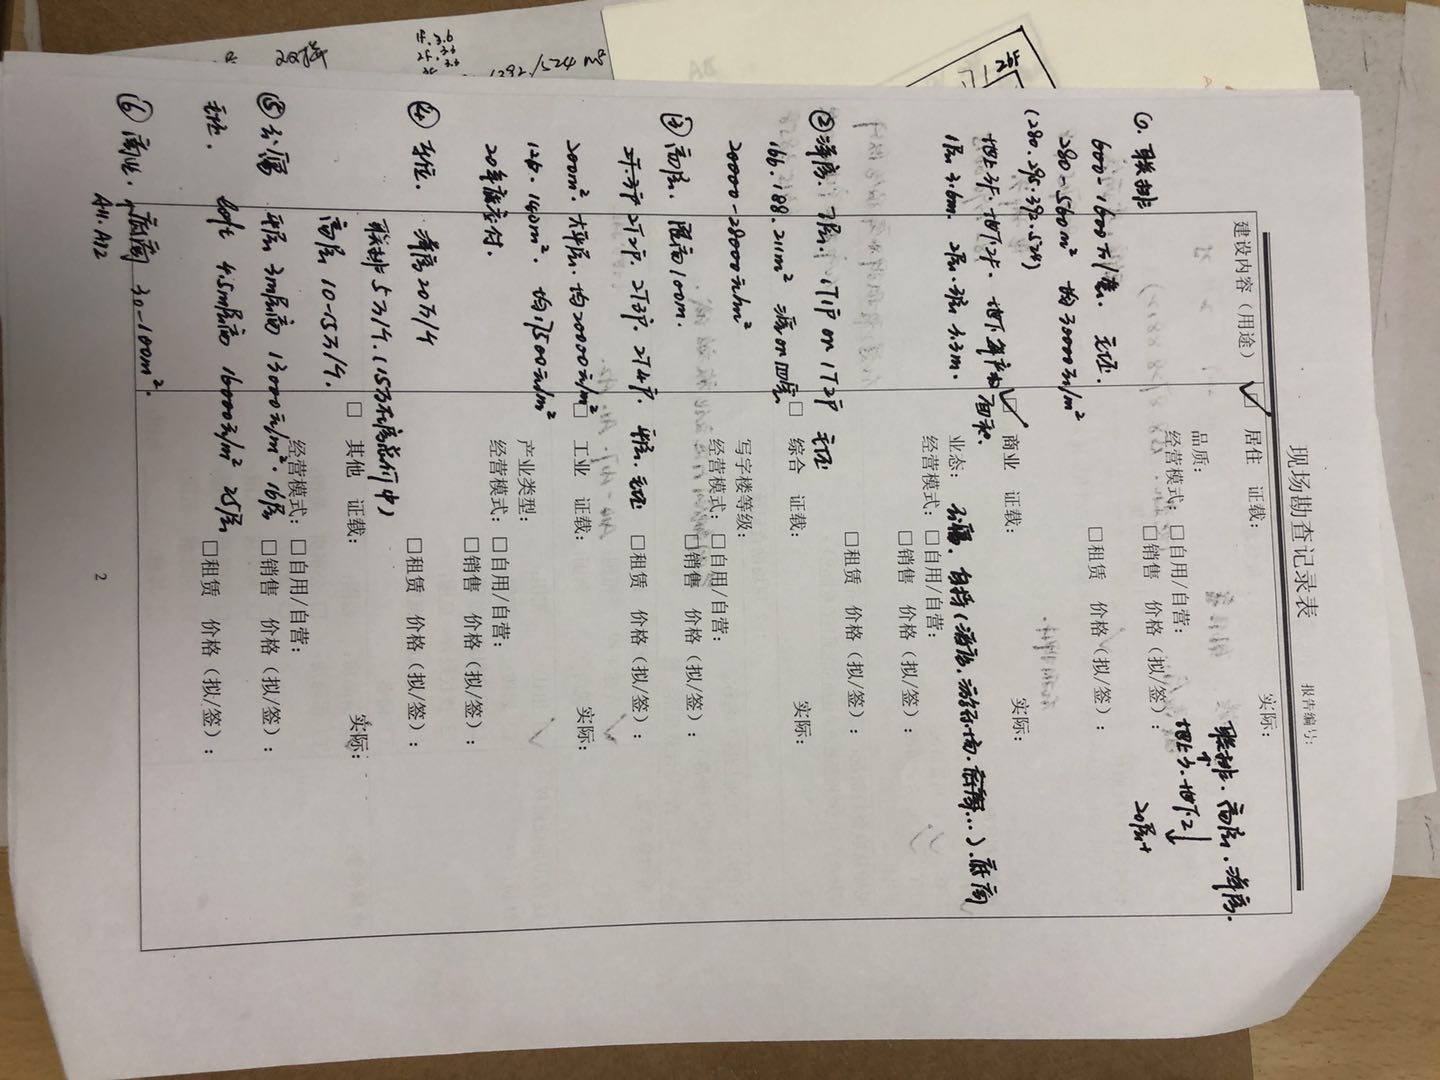 现场勘查记录表
报告编号：
建设内容（用途）
居住 证载： 实际：
联排、高层、洋房.
品质：
地上3、地下2
20层+
经营模式：□自用/自营：
□销售 价格（拟/签）：
□租赁 价格（拟/签）：
商业 证载： 实际：
业态：
公寓、自持
底商
经营模式：□自用/自营：
□销售 价格（拟/签）：
□租赁 价格（拟/签）：
□ 综合 证载： 实际：
写字楼等级：
经营模式：□自用/自营：
□销售 价格（拟/签）：
□租赁 价格（拟/签）：
□ 工业 证载： 实际：
产业类型：
经营模式：□自用/自营：
□销售 价格（拟/签）：
□租赁 价格（拟/签）：
□ 其他 证载： 实际：
经营模式：□自用/自营：
□销售 价格（拟/签）：
□租赁 价格（拟/签）：
联排
600-1600万/套. 无证.
280-560m² 均30000元/m²
(280.295.392.524)
地上3F. 地下2F. 地下
面积.
1层3.6m. 2层.3层3.3m.
② 洋房. 7层. 1T1户 or 1T2户 无证
166.188.211m² 三房or四房
20000-28000元/m²
③ 高层. 限高100m.
2T2户. 2T3户. 2T4户.
无证
200m² 大平层. 均20000元/m²
126.140m². 均17500元/m²
20年底交付.
④ 车位. 洋房20万/个
联排5万/个.
高层10-15万/个.
⑤ 公寓 平层3m层高 13000元/m². 16层
无证. loft 4.5m层高 16000元/m² 25层
⑥ 商业. 底商 30-100m².
A11.A12
2
1292/524 m²